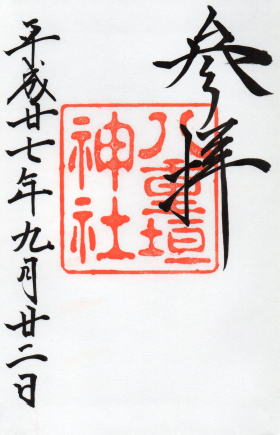 参拜
八重垣
神社
平成廿七年九月廿二日